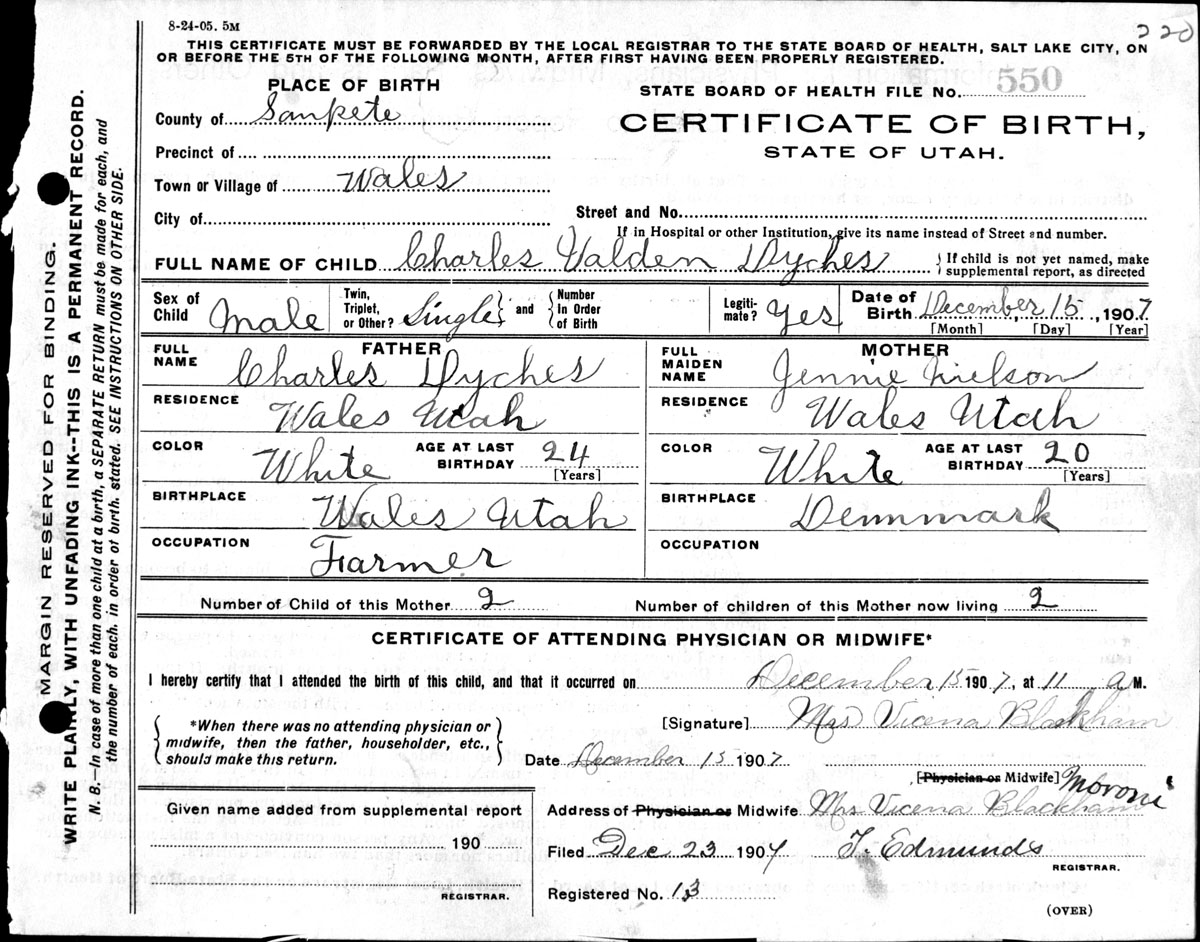 8-24-05. 5M
220
THIS CERTIFICATE MUST BE FORWARDED BY THE LOCAL REGISTRAR TO THE STATE BOARD OF HEALTH, SALT LAKE CITY, ON
OR BEFORE THE 5TH OF THE FOLLOWING MONTH, AFTER FIRST HAVING BEEN PROPERLY REGISTERED.
PLACE OF BIRTH
STATE BOARD OF HEALTH FILE No. 550
County of Sanpete
CERTIFICATE OF BIRTH,
STATE OF UTAH.
Precinct of
Town or Village of Wales
City of
Street and No.
If in Hospital or other Institution, give its name instead of Street and number.
FULL NAME OF CHILD Charles Valden Dyches { If child is not yet named, make
supplemental report, as directed
Sex of Child Male
Twin, Triplet, or Other? Single } and { Number In Order of Birth
Legitimate? Yes
Date of Birth December 15, 1907
[Month] [Day] [Year]
FATHER
FULL NAME Charles Dyches
RESIDENCE Wales Utah
COLOR White AGE AT LAST BIRTHDAY 24
[Years]
BIRTHPLACE Wales Utah
OCCUPATION Farmer
MOTHER
FULL MAIDEN NAME Jennie Nielson
RESIDENCE Wales Utah
COLOR White AGE AT LAST BIRTHDAY 20
[Years]
BIRTHPLACE Dennmark
OCCUPATION
Number of Child of this Mother 2 Number of children of this Mother now living 2
CERTIFICATE OF ATTENDING PHYSICIAN OR MIDWIFE*
I hereby certify that I attended the birth of this child, and that it occurred on December 15 1907, at 11 a M.
{ *When there was no attending physician or
midwife, then the father, householder, etc.,
should make this return. }
[Signature] Mrs Vicena Blackham
Date December 15 1907
[Physician or Midwife]
Given name added from supplemental report
190
REGISTRAR.
Address of Physician or Midwife Mrs Vicena Blackham Moroni
Filed Dec 23 1907 T. Edmunds
REGISTRAR.
Registered No. 13
(OVER)
MARGIN RESERVED FOR BINDING.
WRITE PLAINLY, WITH UNFADING INK--THIS IS A PERMANENT RECORD.
N. B.—In case of more than one child at a birth, a SEPARATE RETURN must be made for each, and
the number of each, in order of birth, stated. SEE INSTRUCTIONS ON OTHER SIDE.